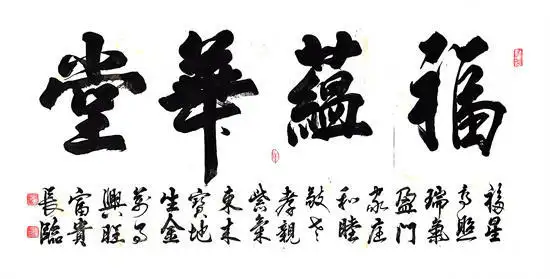 福蘊華堂
福星
高照
瑞氣
盈門
家庭
和睦
敬老
孝親
紫氣
東来
寶地
生金
萬事
興旺
富貴
長臨